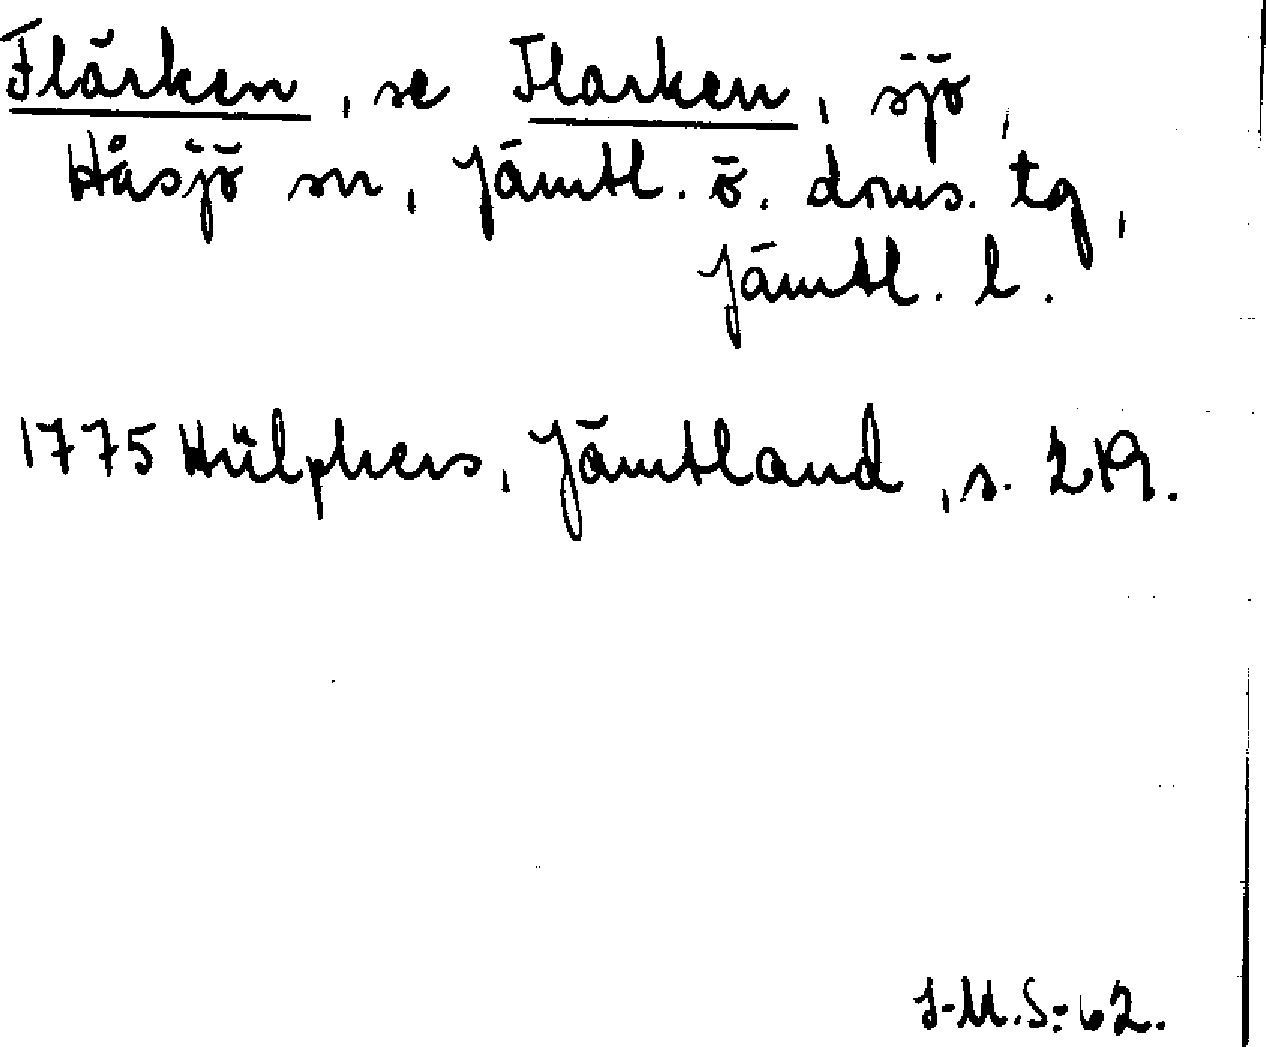 Flärken, se Flarken, sjö,
Håsjö sn, Jämtl. ö. doms. tg,
Jämtl. l.
1775 Hülphers, Jämtland, s. 219.
J-M.S:62.